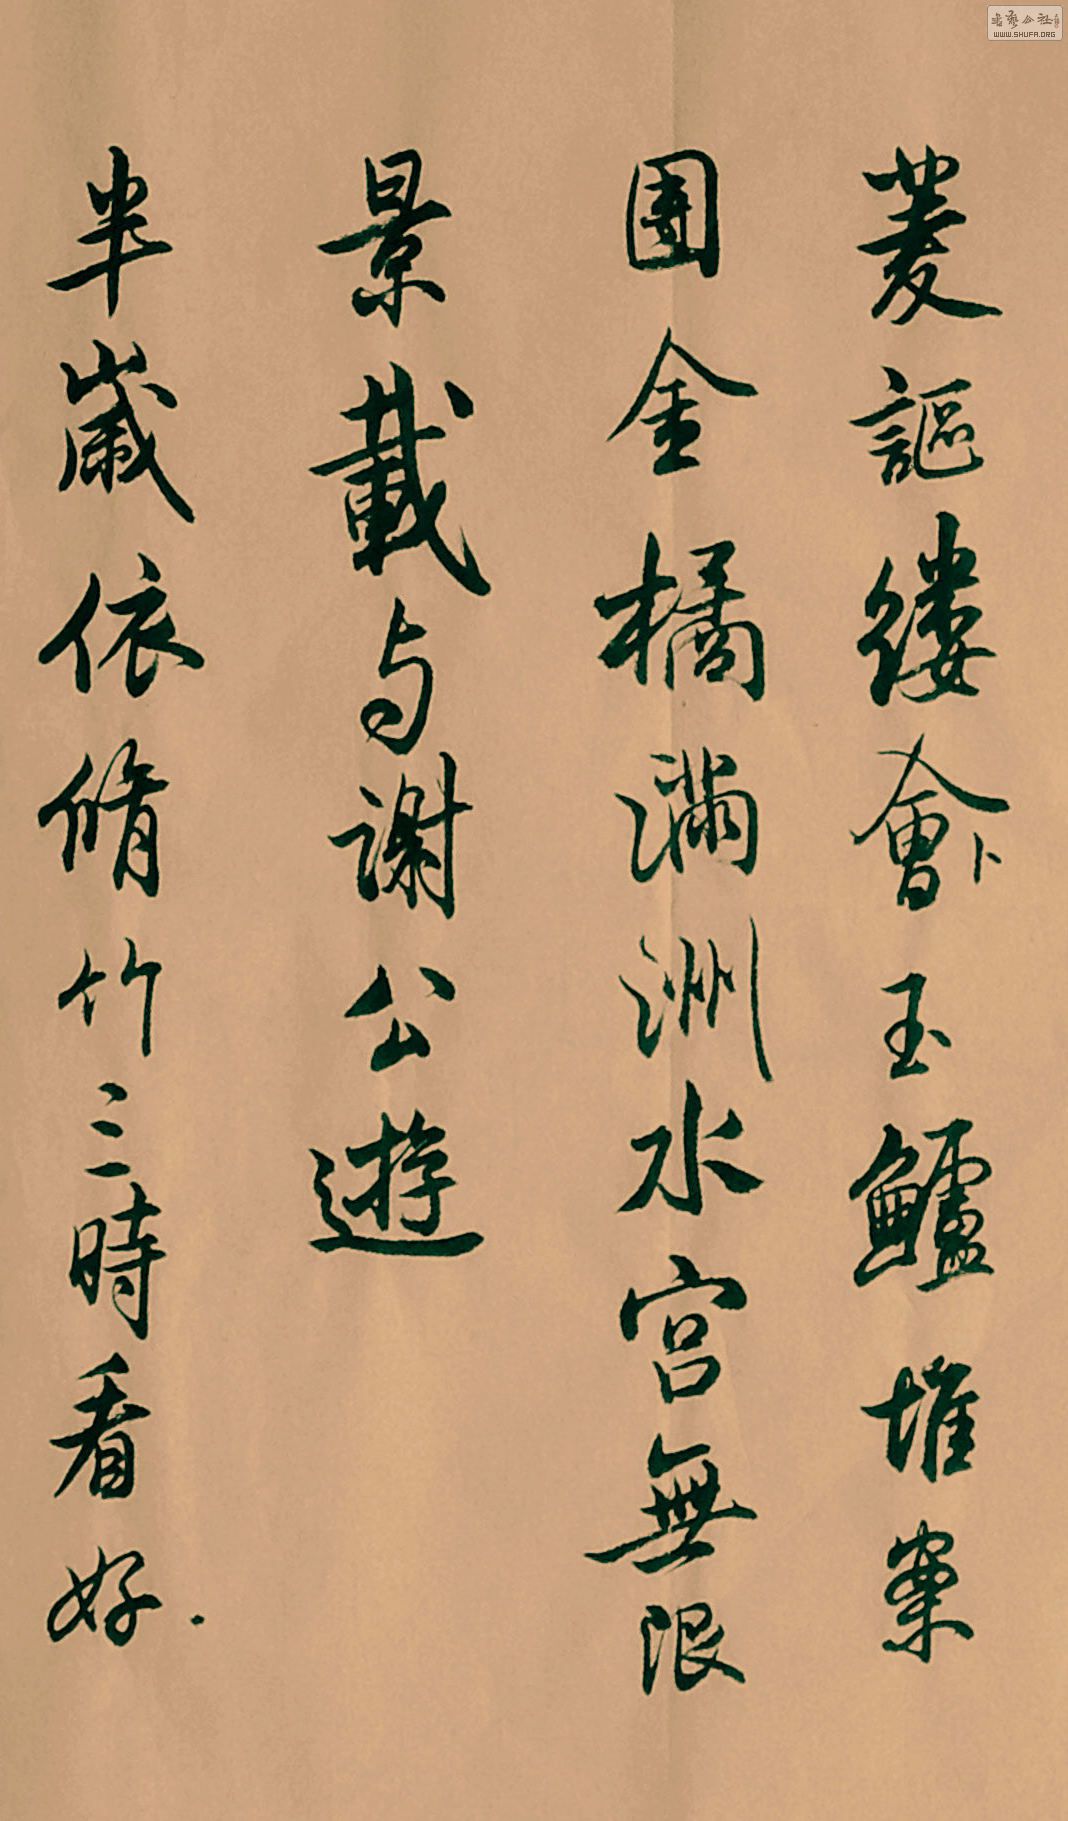 菱謳縷會卜玉鱸堆案
團金橘滿洲水宮無限
景載与謝公遊
半歲依脩竹三時看好
WWW.SHUFA.ORG